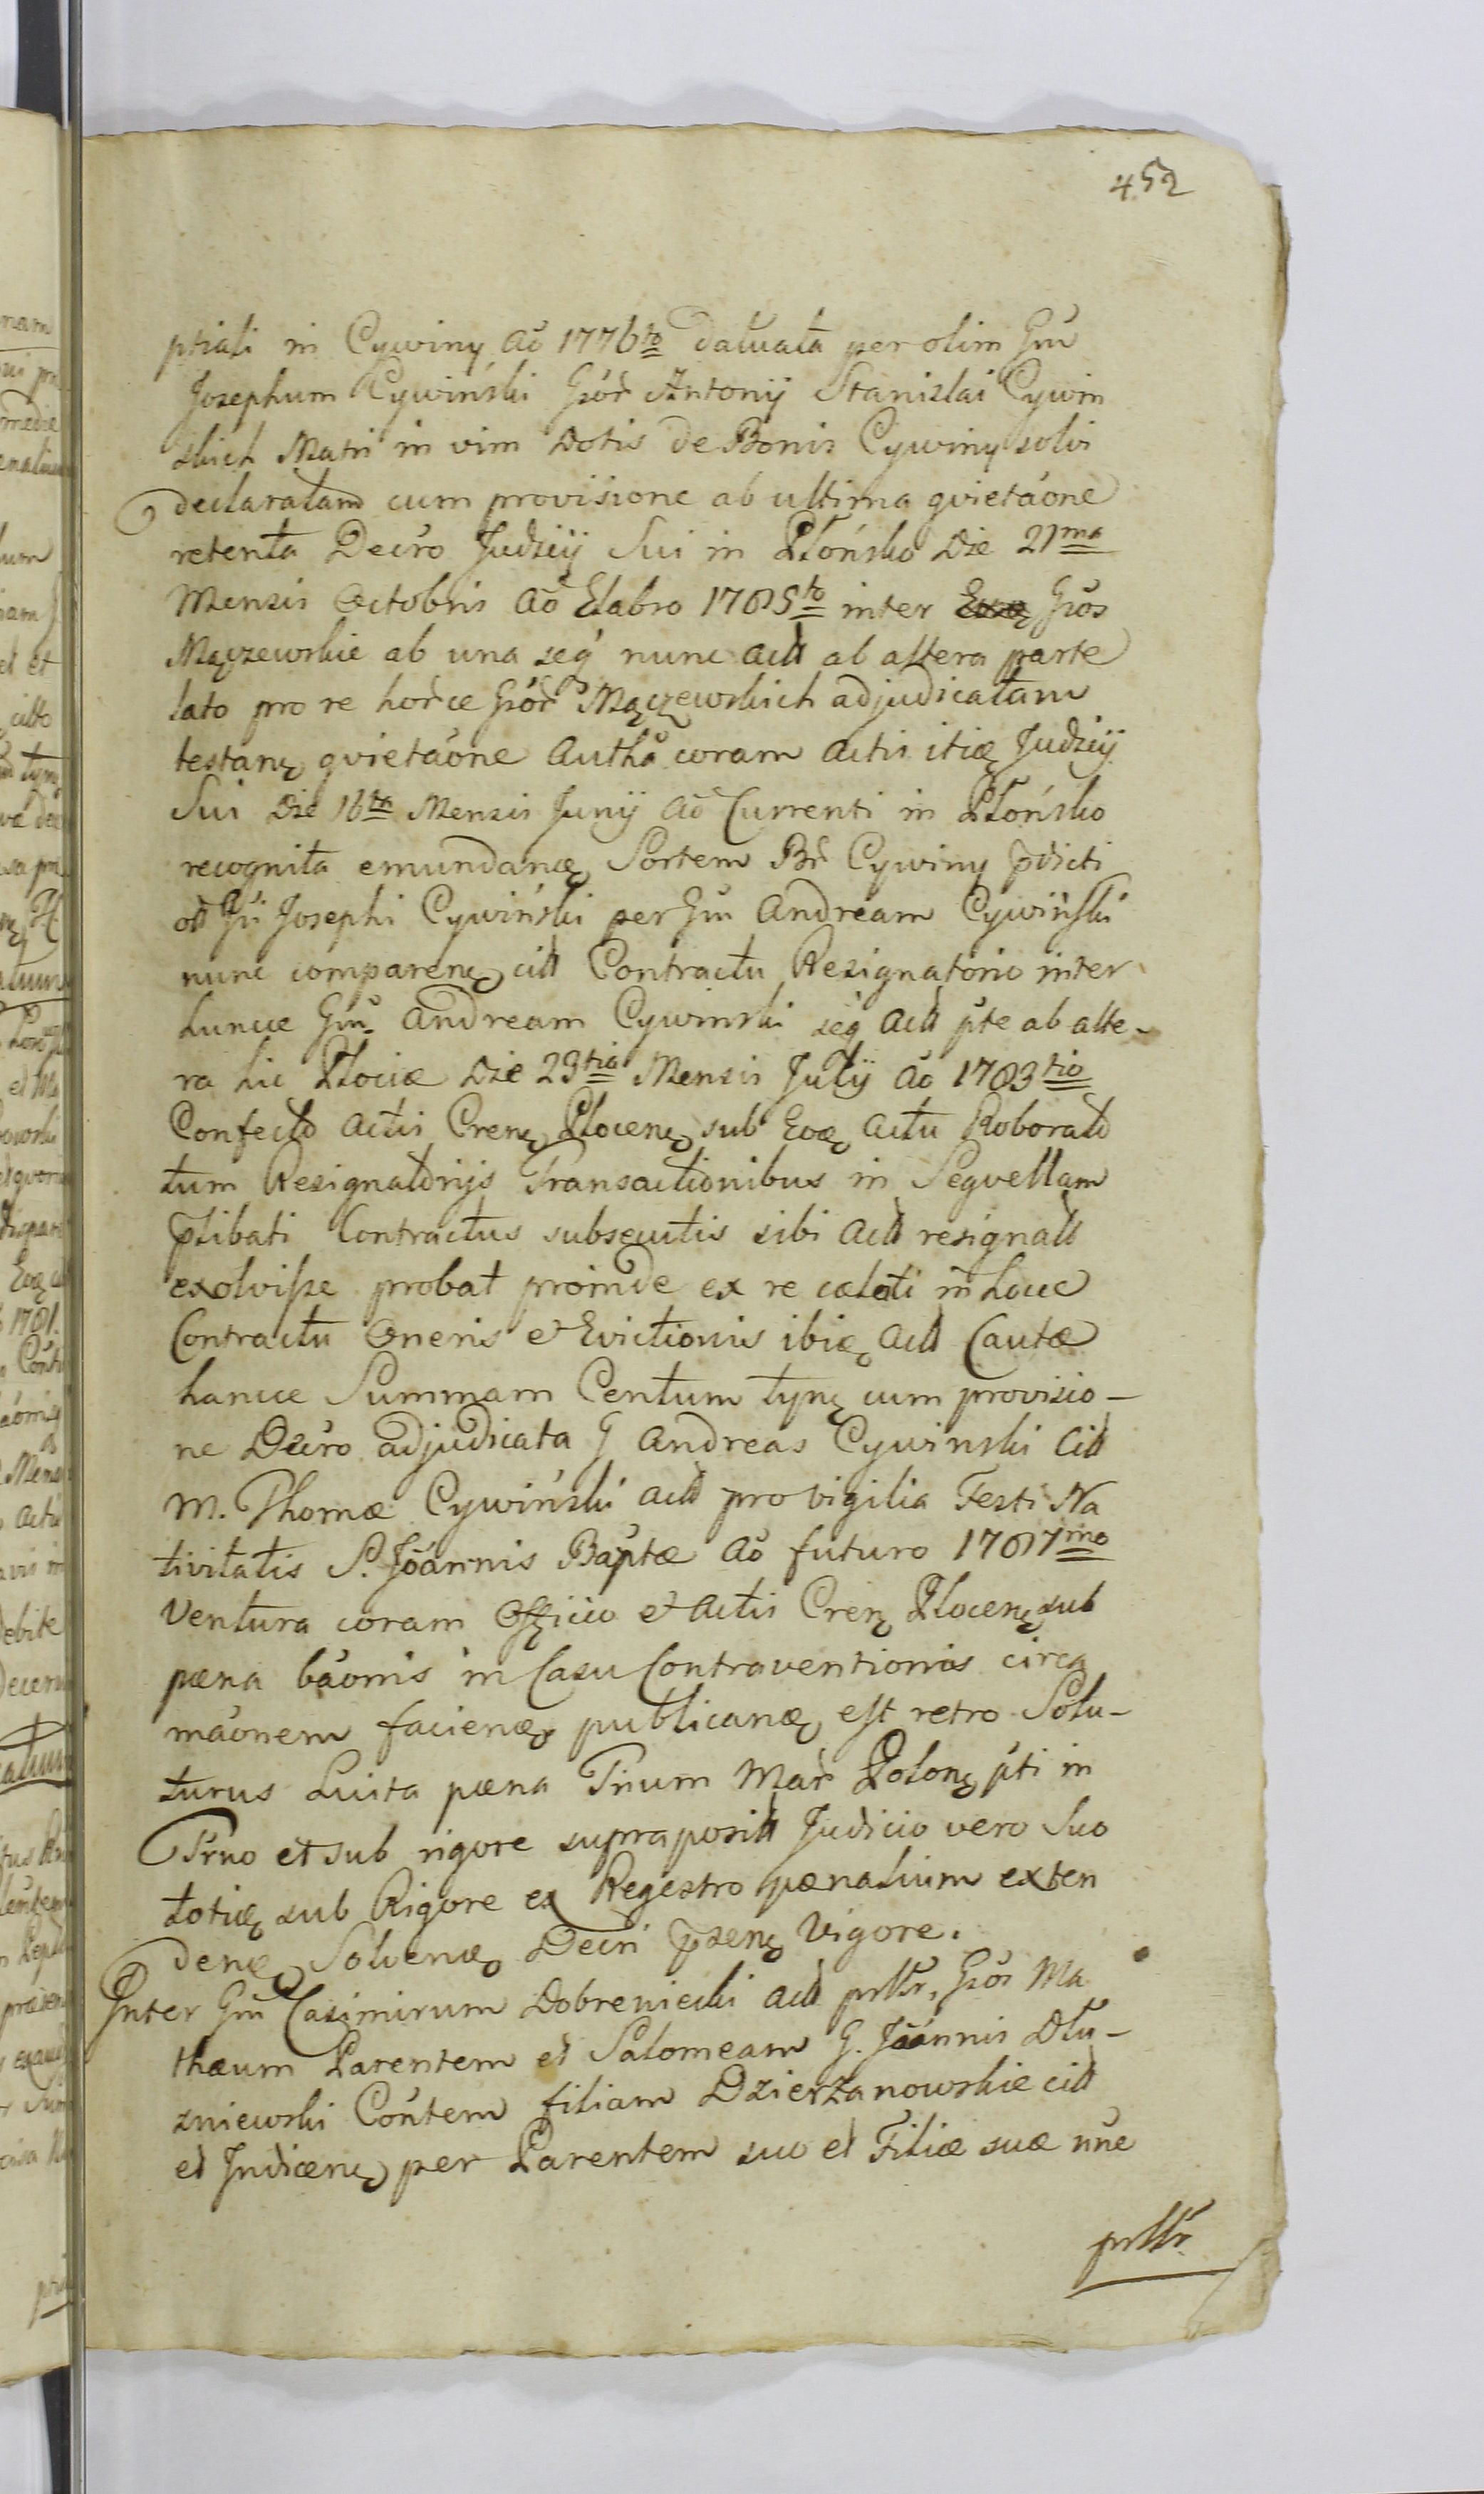 452
ptiali in Cywiny Aõ 1776to datuata per olim Gm̃
Josephum Cywiński Gsór̃ Antonij Stanislai Cywin
skich Matri in vim Dotis de Bonis Cywiny solvi
declaratam cum provisione ab ultima qvietãone
retenta Decr̃o Judzij Sui in Płońsko Die 21ma
Mensis Octobris Aõ Elabso 1785to inter Gsõs
Mączewskie ab una seq̃ nunc Actt ab altera parte
lato pro re horce Gsór̃ Mączewskich adjudicatam
testanę qvietãone Autha coram Actis itię Judzij
Sui Die 16ta Mensis Junij Aõ Currenti in Płońsko
recognita emundandę Sortem Br̃ Cywiny p̃dicti
ott Gsi Josephi Cywiński per Gm̃ Andream Cywiński
nunc comparenę citt Contractu Resignatorio inter
huncce Gm̃ Andream Cywinski seq̃ Actt p̃te ab alte-
ra hic Płociæ Die 23tia Mensis Julij Aõ 1783tio
Confecto Actis Crenę Plocenę sub Eoę Actu Roborato
tum Resignatorijs Transactionibus in Seqvellam
p̃libati Contractus subsecutis sibi Actt resignatt
exolvisse probat proinde ex re calati in hocce
Contractu Oneris et Evictionis ibię Actt Cautæ
hancce Summam Centum tynę cum provisio-
ne Decr̃o adjudicata G Andreas Cywinski Citt
M. Thomæ Cywiński Actt pro vigilia Festi Na
tivitatis S. Jõannis Bap̃tæ Aõ futuro 1787mo
Ventura coram Officio et Actis Crenę Plocenę sub
pæna bãonis in Casu Contraventionis circa
mãonem facienę publicanę est retro Solu-
turus Luita pæna Trium Mar̃ Polonę p̃ti in
Tr̃no et sub rigore supraposit Judicio vero Suo
totię sub Rigore ex Regestro pænalium exten
denę Solvenę Decr̃i p̃senę Vigore.
Inter Gm̃ Casimirum Dobreniecki Actt prttr̃, Gsõs Ma
thæum Parentem et Salomeam G. Jõannis Dłu-
zniewski Cõntem filiam Dzierzanowskie citt
et Indicenę per Parentem suo et Filiæ suæ nñe
prttr̃